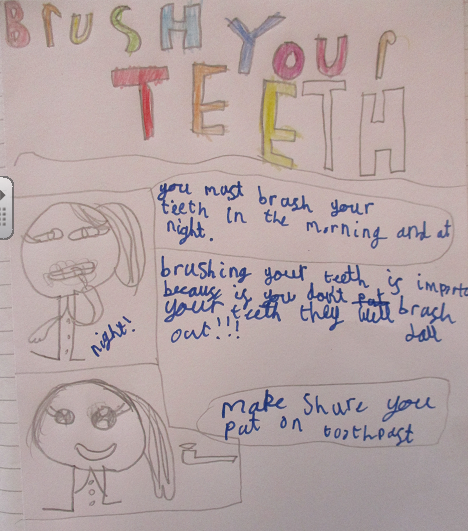 BrUSH YOUr
TEETH
you must brush your
teeth in the morning and at
night.
brushing your teeth is importa
becaus is you don't put brush
your teeth they will fall
out!!!
night!
Make Share you
pat on toothpast